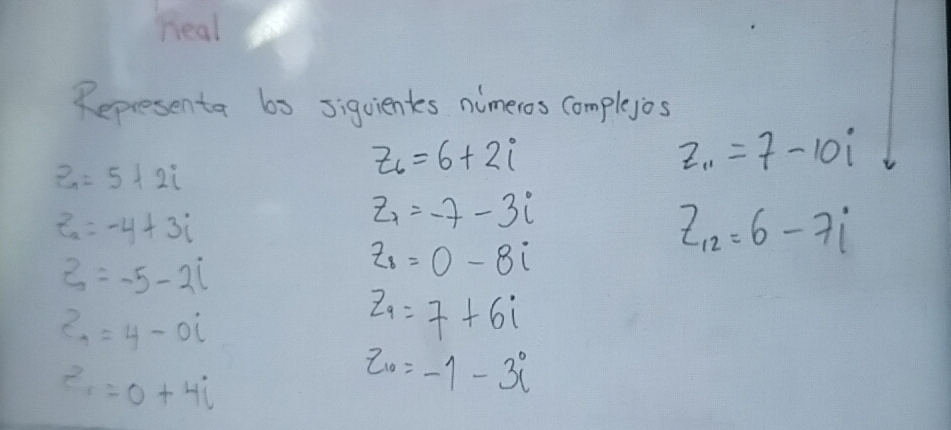 Real
Representa los siguientes números complejos
Z₁ = 5 + 2i
Z₂ = -4 + 3i
Z₃ = -5 - 2i
Z₄ = 4 - 0i
Z₅ = 0 + 4i
Z₆ = 6 + 2i
Z₇ = -7 - 3i
Z₈ = 0 - 8i
Z₉ = 7 + 6i
Z₁₀ = -1 - 3i
Z₁₁ = 7 - 10i
Z₁₂ = 6 - 7i